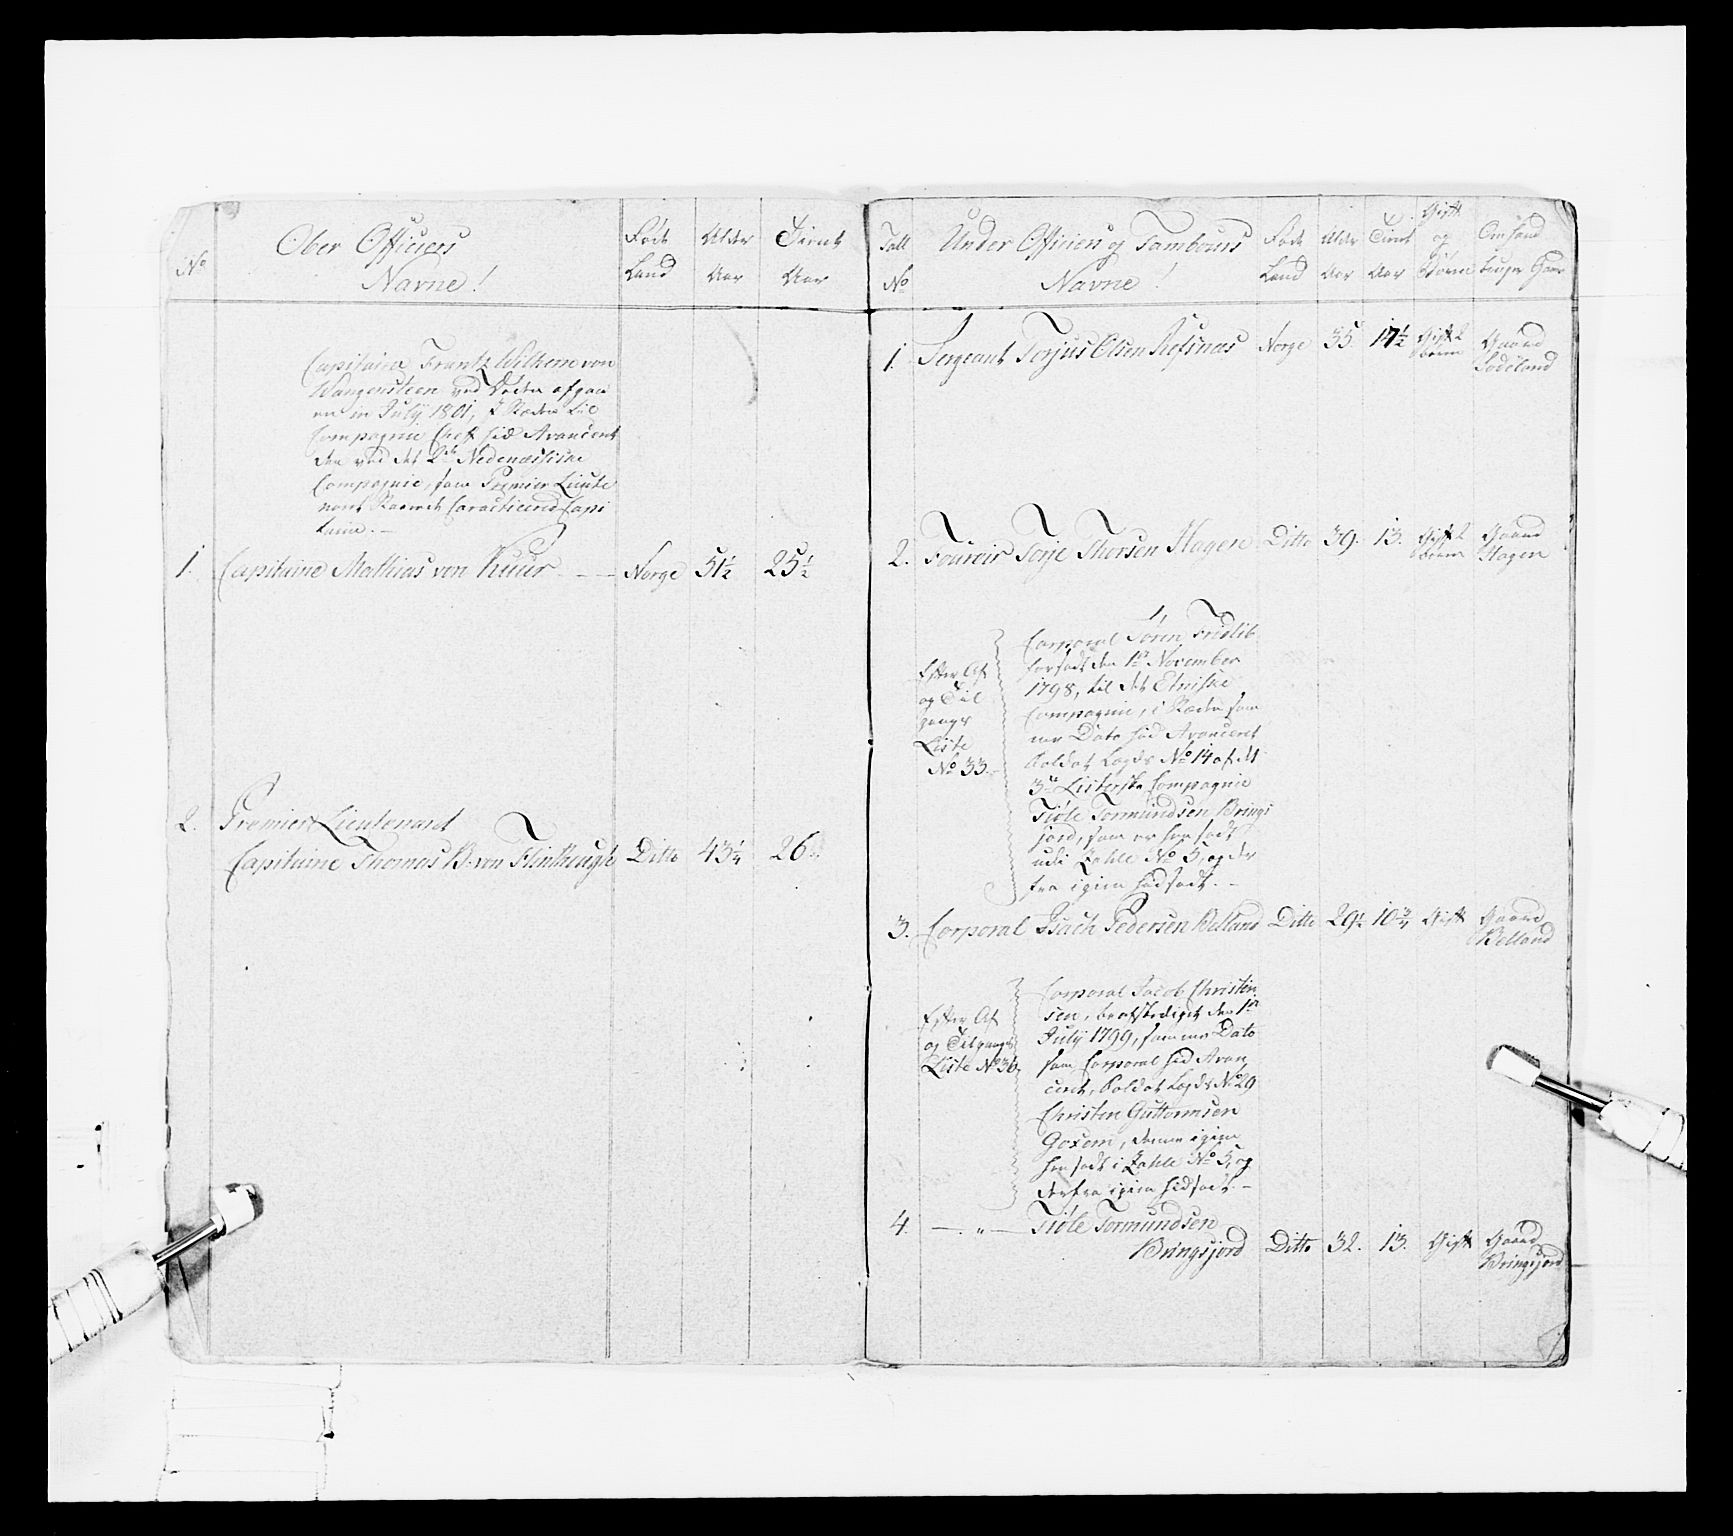 No
Ober Officiers
Navne!
Føde
Land
Alder
Aar
Tient
Aar
Capitaine Frantz Wilhem von
Wangensteen ved Døden afgaa
en in July 1801,
Compagnie Chef hid Avancerit
den ved det 2det Nedenæssiske
Compagnie, som Premier Lieute
nant Caracteriered Capi
taine. —
1. Capitaine Mathias von Kuur - — Norge 51½ 25½
2. Premier Lieutenant
Capitaine Thomas B. von Flinthaugh Ditto 43¼ 26
Tall
No
Under Officiers og Tambours
Navne!
Føde
Land
Alder
Aar
Tient
Aar
Gift
og
Børn
Om hand
bruger Gaar
1. Sergeant Torjus Olsen Refsnæs Norge 35. 17½ Gift 2
børn
Gaard
Lødeland
2. Foureir Terje Thorsen Hagen Ditto 39. 13. Gift 2
børn
Gaard
Hagen
Efter Af
og Til
gangs
Liste
No 33.
Corporal Søren Fridlib
forsadt den 1ste November
1798, til det Etniske
Compagnie, i Stæden sam
me Dato hid Avanceret
Soldat Lægds No 14 af det
3de Listerske Compagnie
Tiøle Tormundsen Brings
jord, som er hensadt
udi Tahle No 5, og der
fra igien hidsadt. —
3. Corporal Isach Pedersen Belland Ditto 29½ 10¾ Gift Gaard
Belland
Efter Af
og Tilgangs
Liste No 36.
Corporal Jacob Christen
sen, beafskediget den 1ste
July 1799, samme Dato
som Corporal hid Avan
ceret, Soldat Lægds No 29
Christen Guttormsen
Gosem, denne igien
hensadt i Tahle No 5, og
derfra igien hidsadt. —
4. — " — Tiøle Tormundsen
Bringsjord Ditto 32. 13. Gift Gaard
Bringsjord